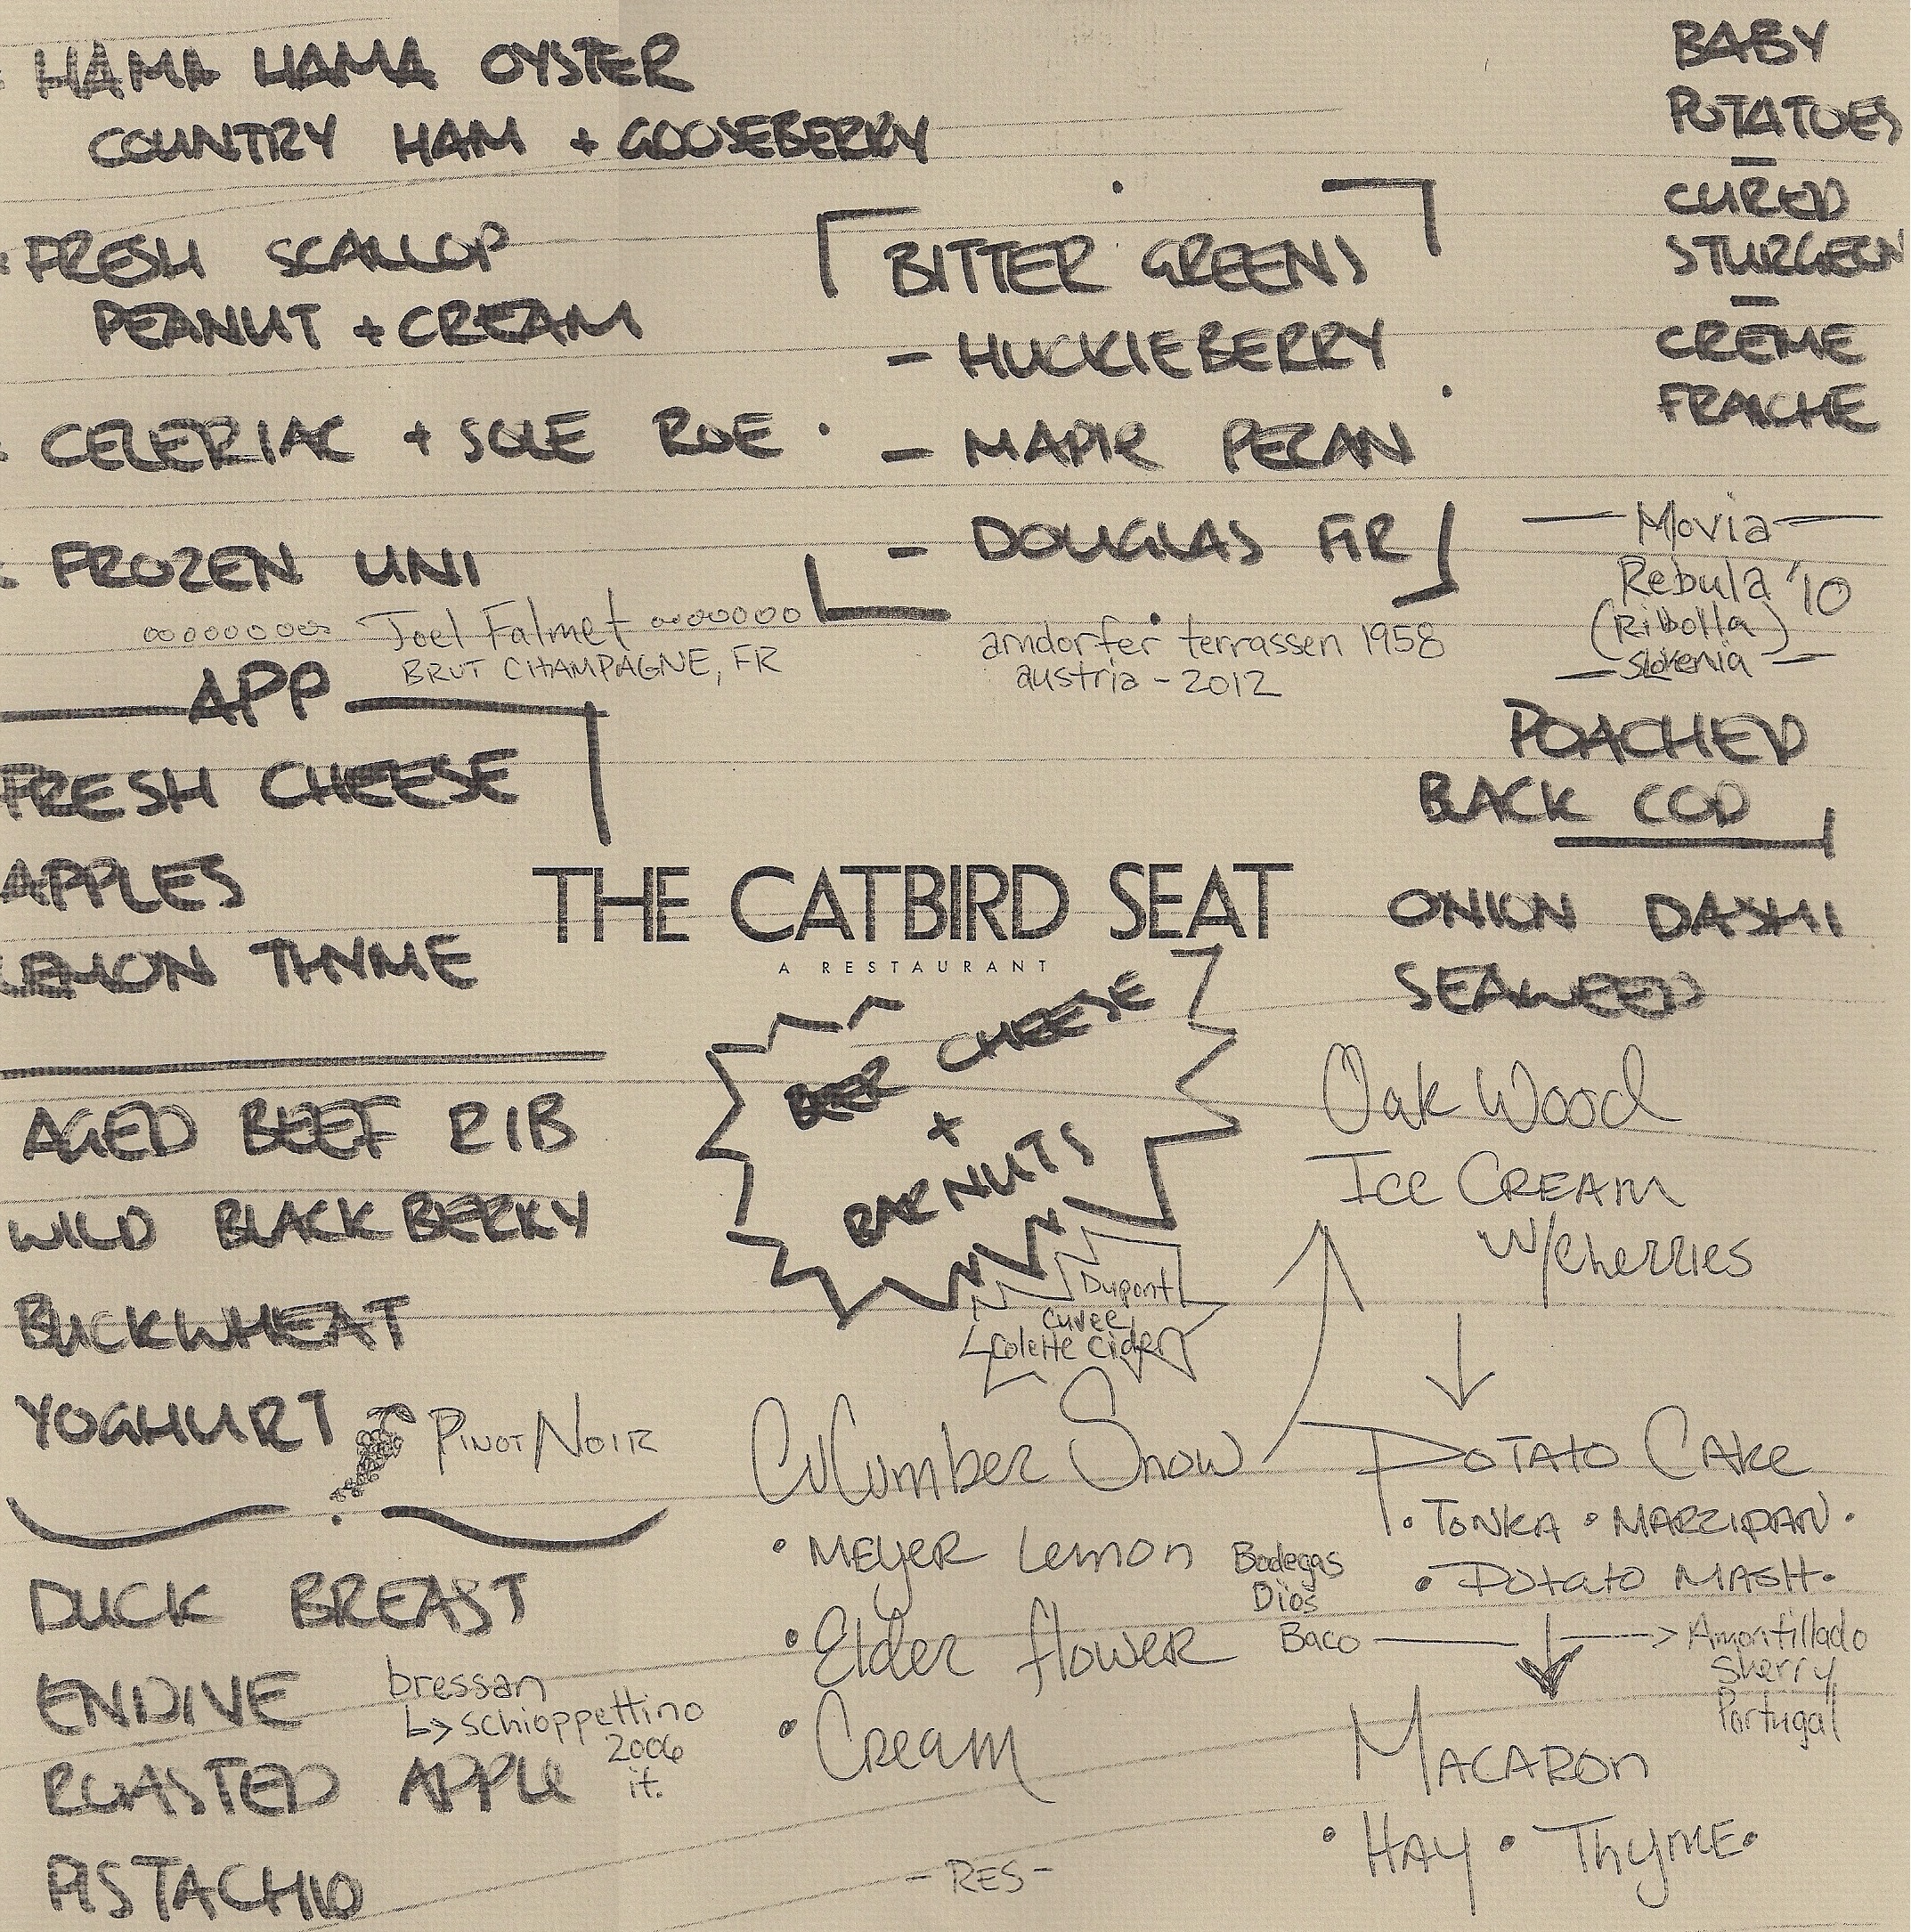 HAMA HAMA OYSTER
COUNTRY HAM + GOOSEBERRY
FRESH SCALLOP
PEANUT + CREAM
CELERIAC + SOLE ROE
FROZEN UNI
Joel Falmet
BRUT CHAMPAGNE, FR
BITTER GREENS
- HUCKLEBERRY
- MAPLE PECAN
- DOUGLAS FIR
arndorfer terrassen 1958
austria - 2012
BABY
POTATOES
-
CURED
STURGEON
-
CRÈME
FRAICHE
Movia
Rebula '10
(Ribolla)
Slovenia
APP
FRESH CHEESE
APPLES
LEMON THYME
POACHED
BACK COD
ONION DASHI
SEAWEED
THE CATBIRD SEAT
A RESTAURANT
BEER CHEESE
+
BAR NUTS
Dupont
Cuvee
Colette Cider
AGED BEEF RIB
WILD BLACKBERRY
BUCKWHEAT
YOGHURT
PINOT NOIR
DUCK BREAST
ENDIVE
ROASTED APPLE
PISTACHIO
bressan
↳ schioppettino
2006
it.
CuCumber Snow
• MEYER Lemon
• Elder flower
• Cream
Oak Wood
Ice CREAM
w/cherries
POTATO CAKe
• TONKA • MARZIPAN •
• Potato MASH •
Bodegas
Dios
Baco
Amontillado
Sherry
Portugal
MACARON
• HAY • ThyME •
- RES -